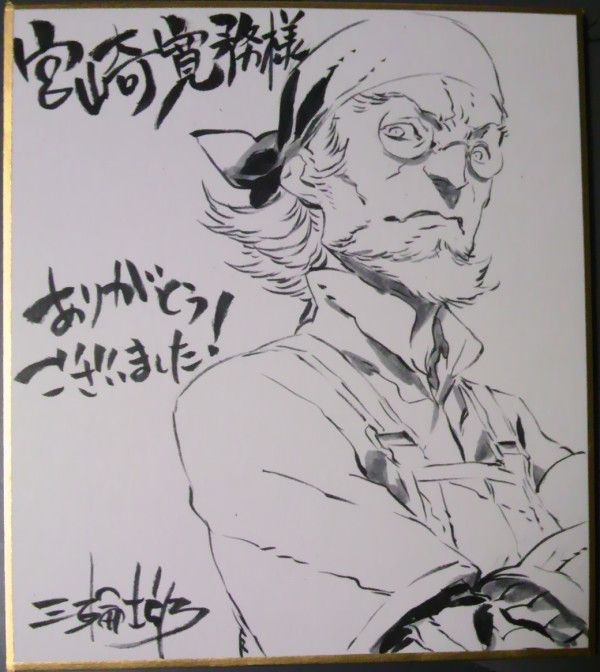 宮崎寛務様
ありがとう
ございました!
三輪士郎